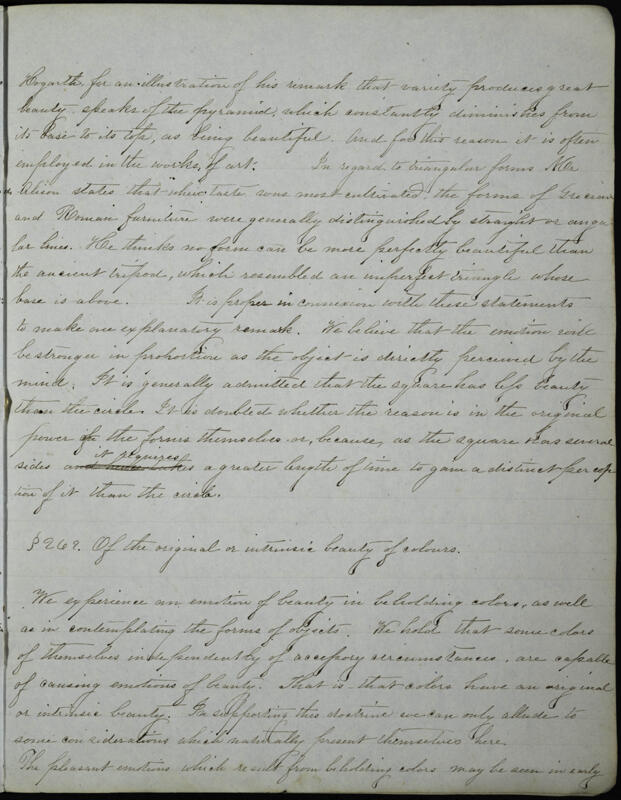 Hogarth, for an illustration of his remark that variety produces great
beauty, speaks of the pyramid, which constantly diminishes from
its base to its top, as being beautiful. And for this reason it is often
employed in the works of art. In regard to triangular forms Mr
Alison states that when taste was most cultivated the forms of Grecian
and Roman furniture were generally distinguished by straight or angu-
lar lines. He thinks no form can be more perfectly beautiful than
the ancient tripod, which resembled an imperfect triangle whose
base is above. It is proper in connexion with these statements
to make one explanatory remark. We believe that the emotion will
be stronger in proportion as the object is directly perceived by the
mind. It is generally admitted that the square has less beauty
than the circle. It is doubted whether the reason is in the original
power of the forms themselves or, because, as the square has several
it requires
sides and a greater length of time to gain a distinct percep
tion of it than the circle.
§ 262. Of the original or intrinsic beauty of colours.
We experience an emotion of beauty in beholding colors, as well
as in contemplating the forms of objects. We hold that some colors
of themselves independently of accessory circumstances, are capable
of causing emotions of beauty. That is that colors have an original
or intrinsic beauty. In supporting this doctrine we can only allude to
some considerations which naturally present themselves here.
The pleasant emotions which result from beholding colors may be seen in early